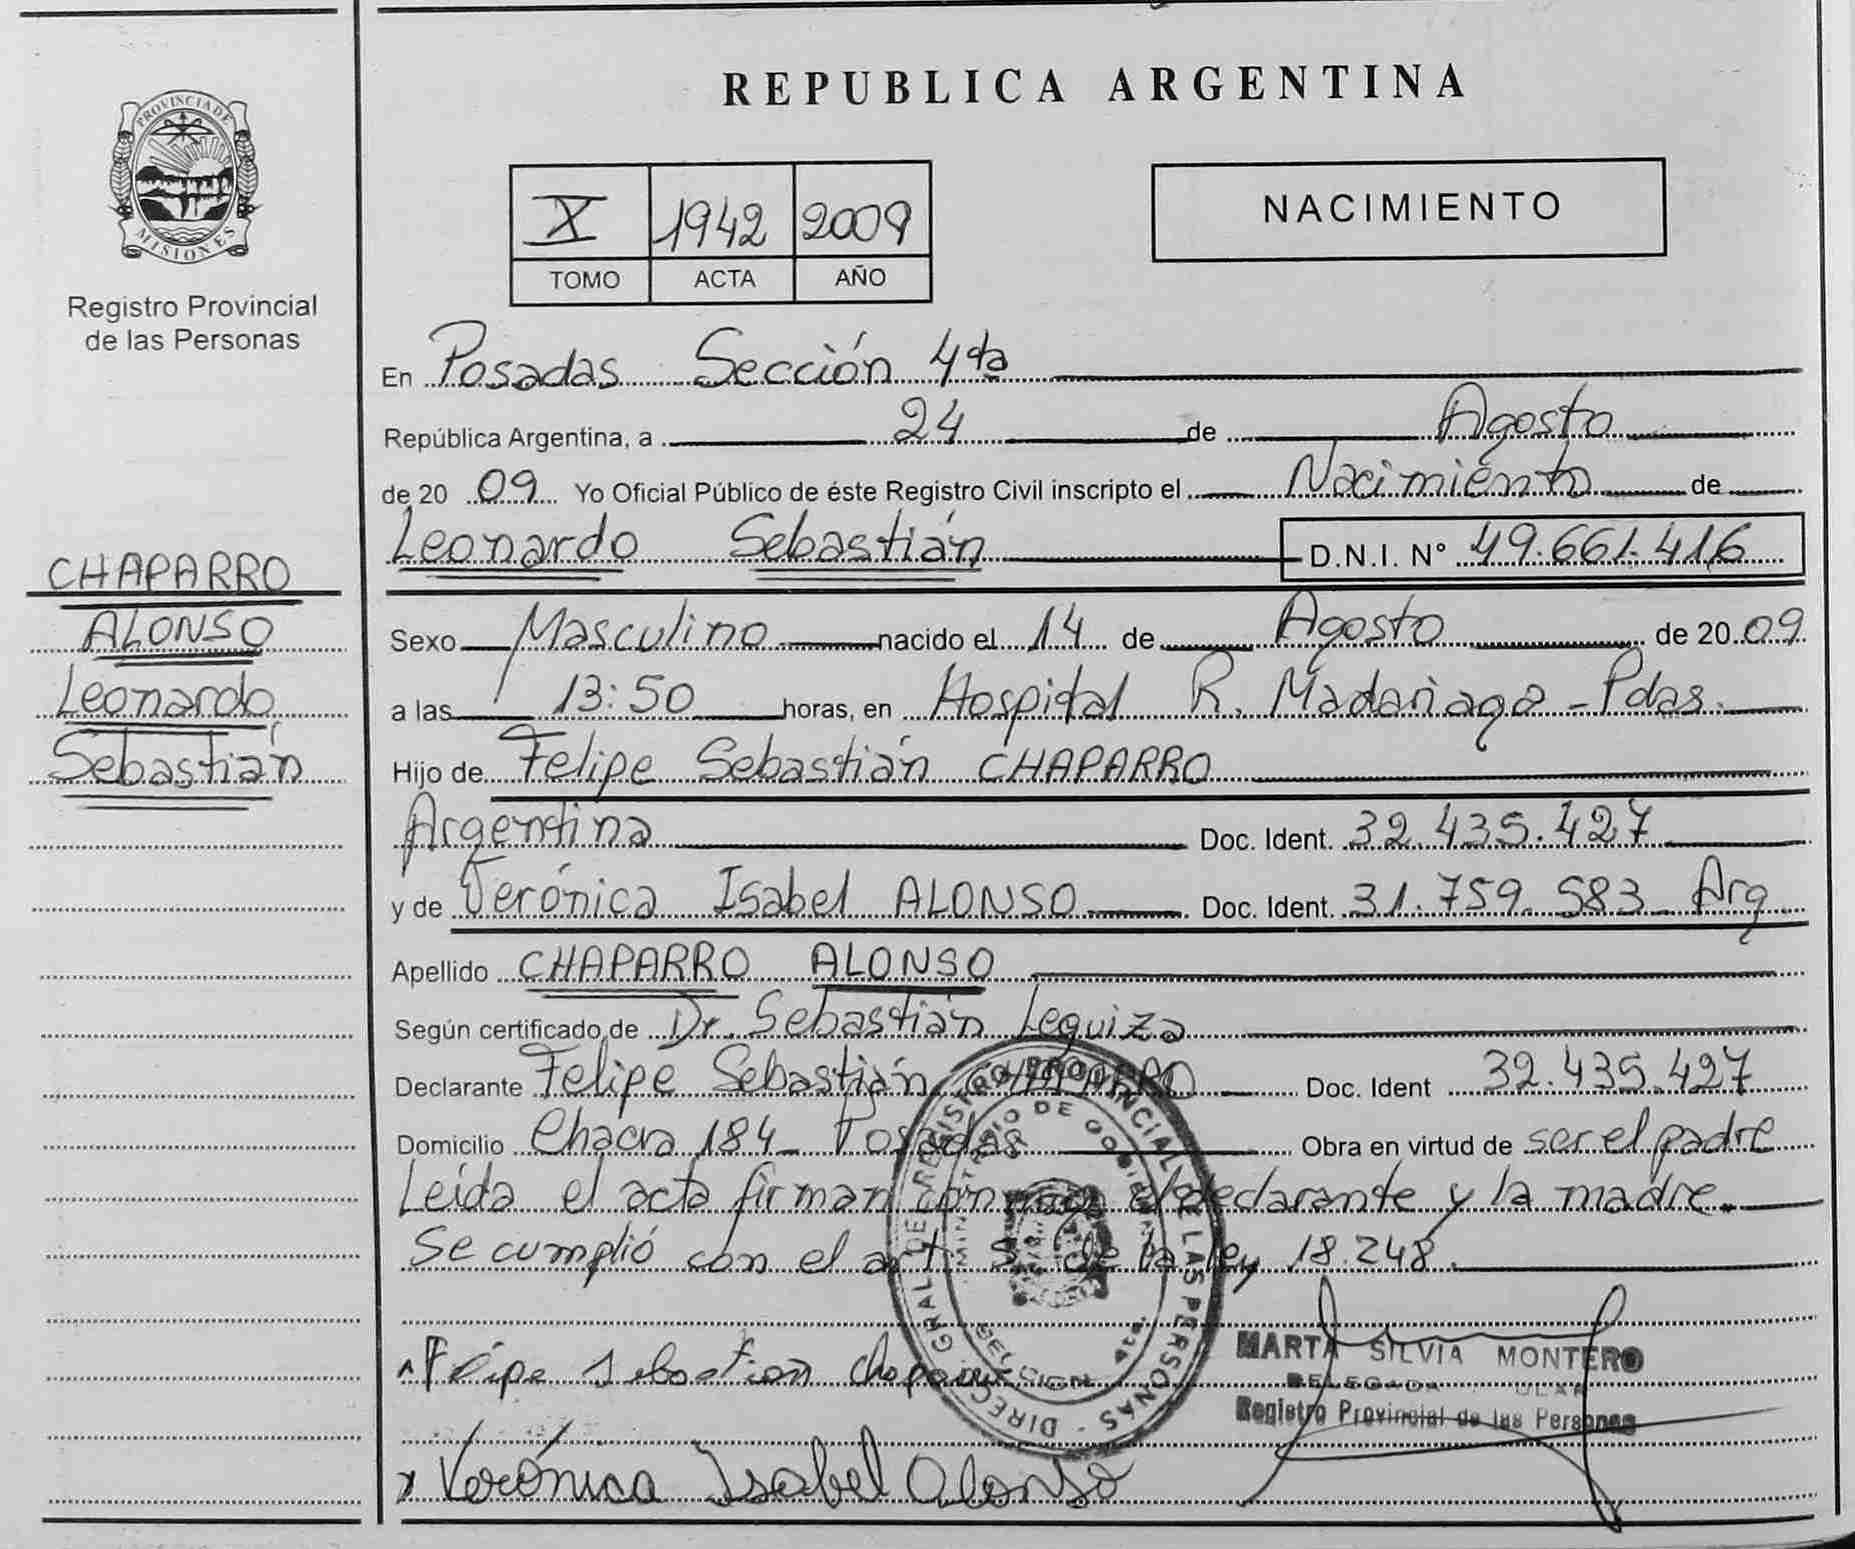 REPUBLICA ARGENTINA
PROVINCIA DE
MISIONES
Registro Provincial
de las Personas
X 1942 2009
TOMO ACTA AÑO
NACIMIENTO
En Posadas Sección 4ta
República Argentina, a 24 de Agosto
de 20 09 Yo Oficial Público de éste Registro Civil inscripto el Nacimiento de
Leonardo Sebastián D.N.I. N° 49.661.416
CHAPARRO
ALONSO
Leonardo
Sebastián
Sexo Masculino nacido el 14 de Agosto de 20 09
a las 13:50 horas, en Hospital R. Madariaga - Pdas.
Hijo de Felipe Sebastián CHAPARRO
Argentina Doc. Ident. 32.435.427
y de Verónica Isabel ALONSO Doc. Ident. 31.759.583 Arg.
Apellido CHAPARRO ALONSO
Según certificado de Dr. Sebastián Leguiza
Declarante Felipe Sebastián CHAPARRO Doc. Ident 32.435.427
Domicilio Chacra 184 - Posadas Obra en virtud de ser el padre
Leída el acta firman conmigo el declarante y la madre.
Se cumplió con el art. de la ley 18.248.
DIREC. GRAL DE REGISTRO PROVINCIAL DE LAS PERSONAS
MINISTERIO DE GOBIERNO
Felipe Sebastian Chaparro
MARTA SILVIA MONTERO
DELEGADA
Registro Provincial de las Personas
Verónica Isabel Alonso